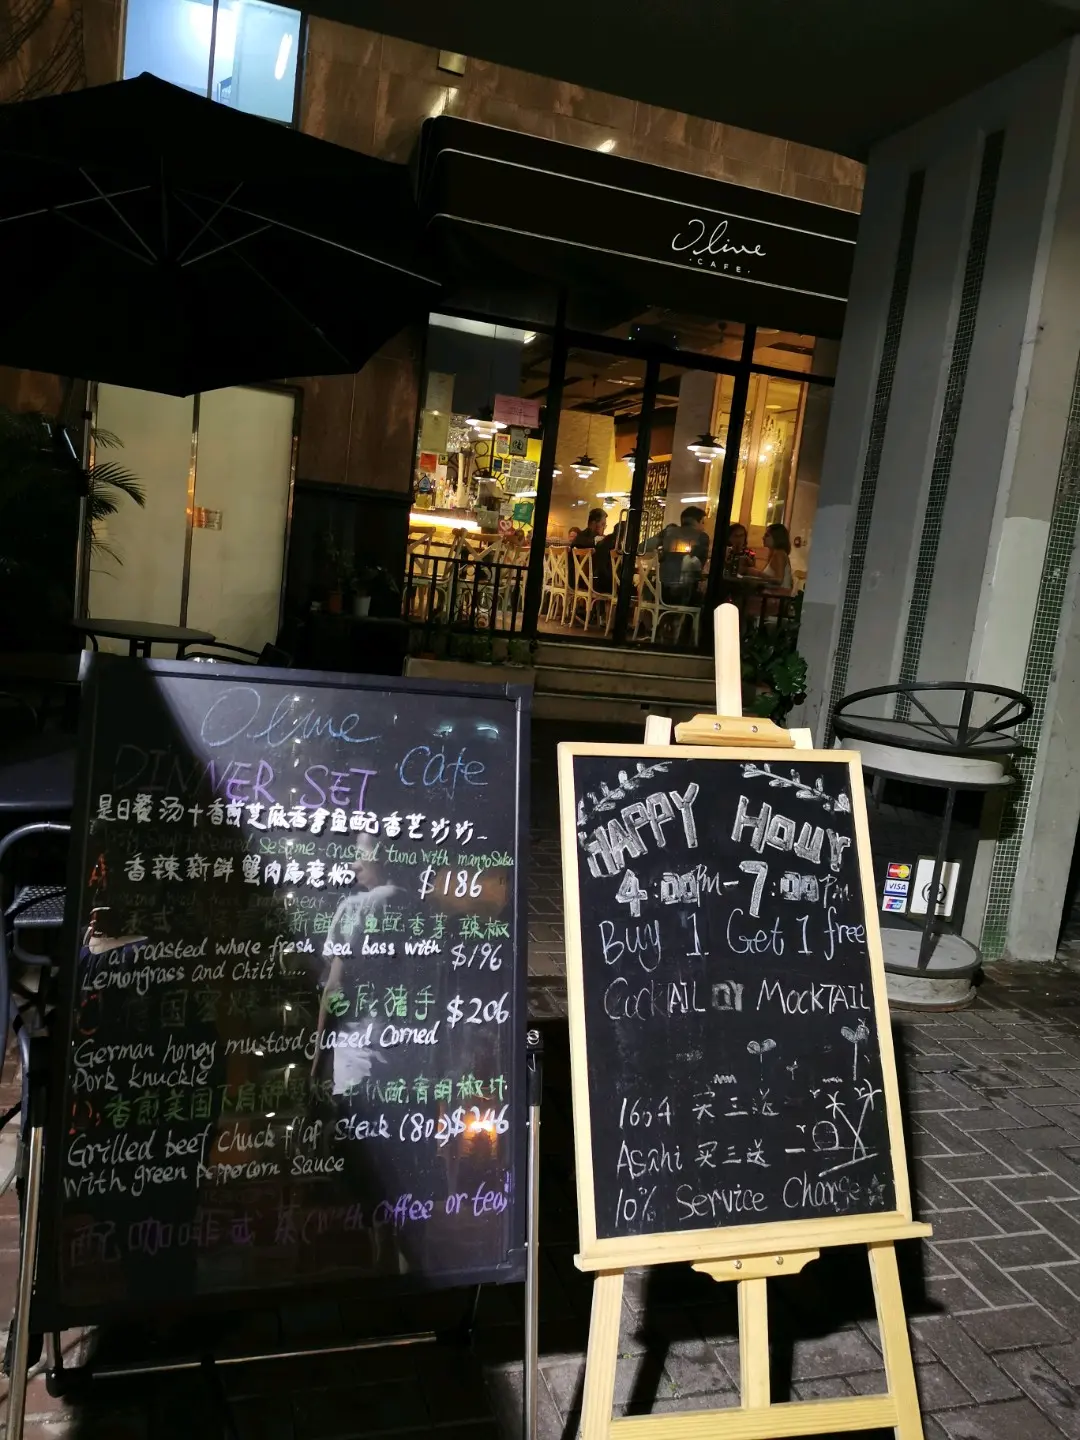 Olive
CAFE
Olive
Cafe
DINNER SET
是日餐汤十香煎芝麻吞拿鱼配香芒沙沙
Seared sesame-crusted tuna with mango Salsa
香辣新鮮蟹肉扁意粉
$186
新鮮 鱼配香茅辣椒
Tai roasted whole fresh sea bass with $196
Lemongrass and Chili......
咸猪手 $206
German honey mustard glazed Corned
Pork knuckle
D. 香煎美国 配青胡椒汁
Grilled beef chuck flap steak (8oz) $246
with green peppercorn sauce
配咖啡或茶 (with coffee or tea)
HAPPY HOUR
4:00PM-7:00PM
Buy 1 Get 1 free
CockTAIL or MockTAIL
1664 买三送
Asahi 买三送一
10% Service Charge
VISA